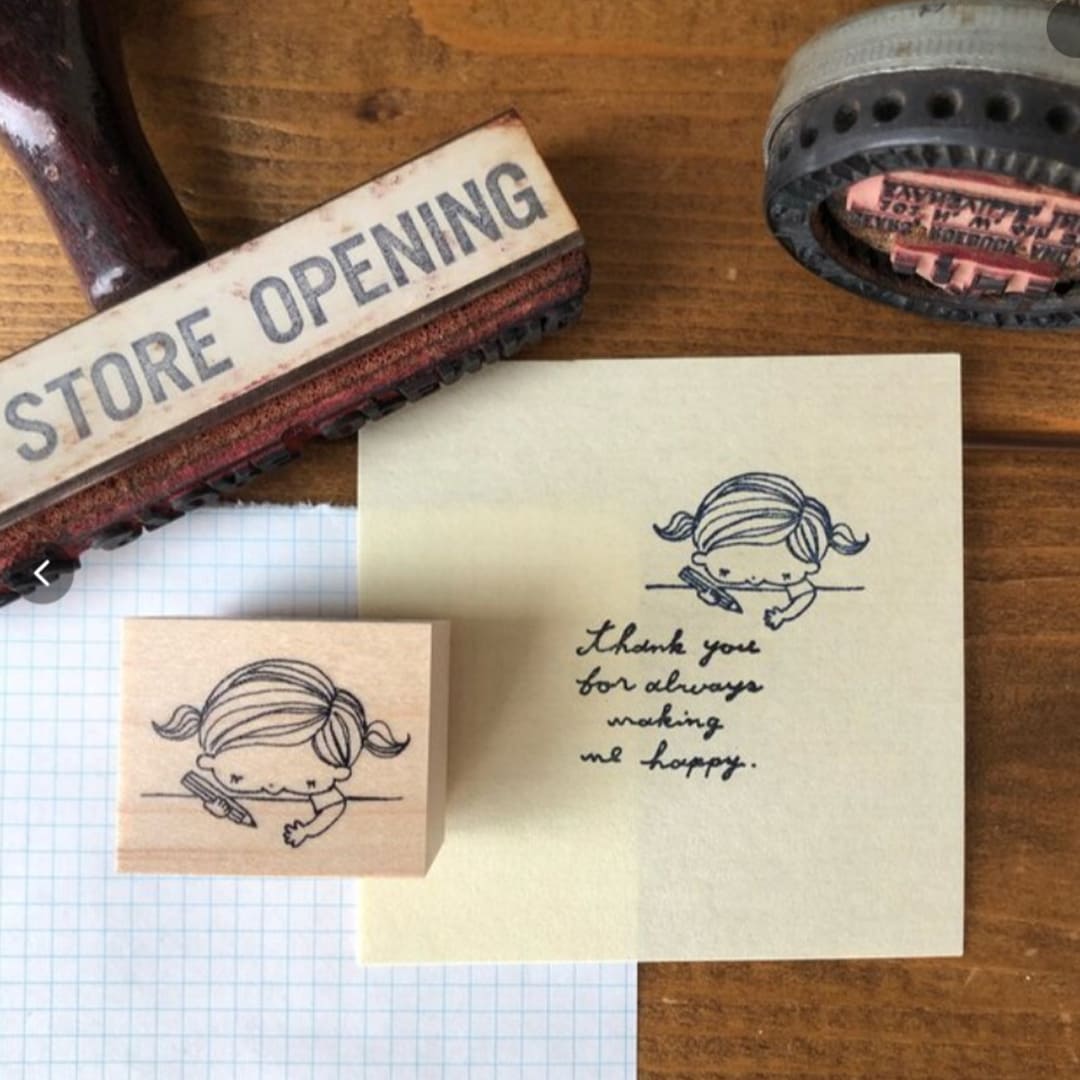 STORE OPENING
Thank you
for always
making
me happy.